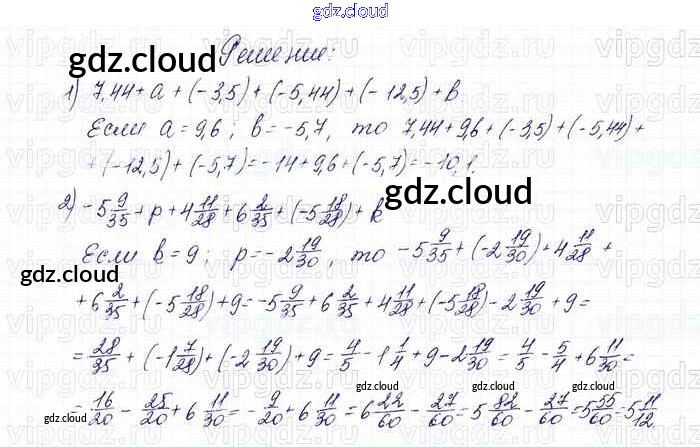 gdz.cloud
Решение:
1) 7,44 + a + (-3,5) + (-5,44) + (-12,5) + b
Если a = 9,6; b = -5,7, то 7,44 + 9,6 + (-3,5) + (-5,44) +
+ (-12,5) + (-5,7) = -14 + 9,6 + (-5,7) = -10,1.
2) -5 9/35 + p + 4 11/28 + 6 2/35 + (-5 18/28) + k
Если b = 9; p = -2 19/30, то -5 9/35 + (-2 19/30) + 4 11/28 +
+ 6 2/35 + (-5 18/28) + 9 = -5 9/35 + 6 2/35 + 4 11/28 + (-5 18/28) - 2 19/30 + 9 =
= 28/35 + (-1 7/28) + (-2 19/30) + 9 = 4/5 - 1 1/4 + 9 - 2 19/30 = 4/5 - 5/4 + 6 11/30 =
= 16/20 - 25/20 + 6 11/30 = -9/20 + 6 11/30 = 6 22/60 - 27/60 = 5 82/60 - 27/60 = 5 55/60 = 5 11/12
gdz.cloud
gdz.cloud
gdz.cloud
gdz.cloud
gdz.cloud
gdz.cloud
gdz.cloud